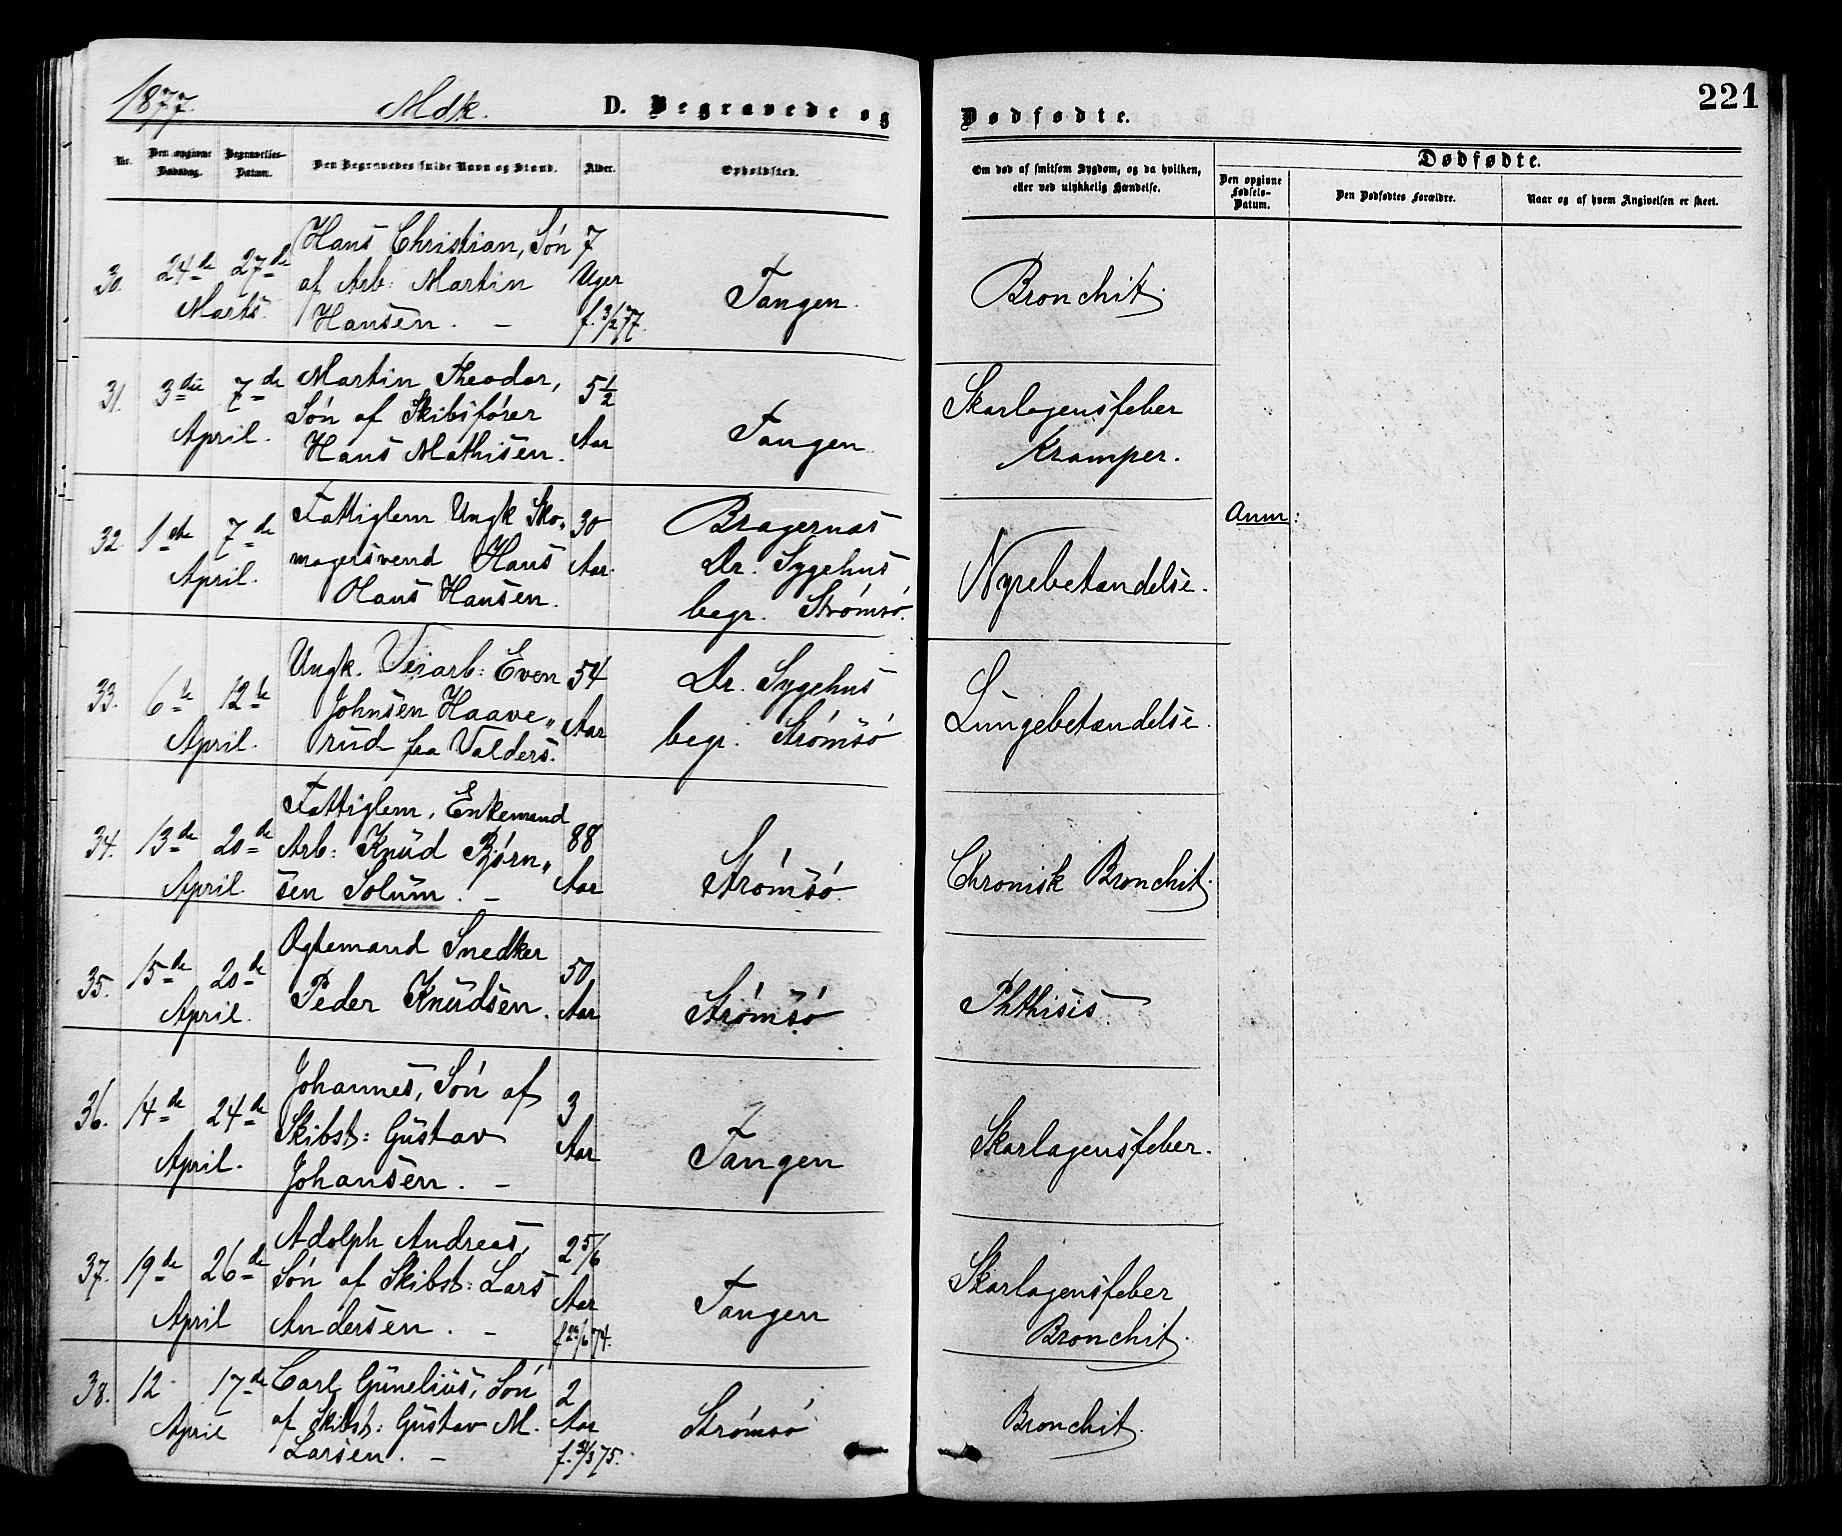 1877. Mdk. D. Begravede og Dødfødte. 221
Nr. Den opgivne Dødsdag. Begravelses-Datum. Den Begravedes fulde Navn og Stand. Alder. Opholdsted. Om død af smitsom Sygdom, og da hvilken, eller ved ulykkelig Hændelse. Dødfødte.
Den opgivne Fødsels-Datum. Den Dødfødtes Forældre. Naar og af hvem Angivelsen er skeet.
30. 24de 27de Hans Christian, Søn 7
af Arb: Martin Uger Tangen. Bronchit.
Marts. Hansen. – f. 3/2 77.
31. 3die 7de Martin Theodor, 5½ Skarlagensfeber
Søn af Skibsfører
April. Hans Mathisen. Aar Tangen. Kramper.
32. 1ste 7de Fattiglem Ungk Sko„ 30 Bragernæs Anm:
magersvend Hans Aar. Dr. Sygehus Nyrebetændelse.
April. Hans Hansen. begr. Strømsø.
33. 6te 12te Ungk. Veiarb: Even 54 Dr. Sygehus
Johnsen Haave„ Lungebetændelse.
April. rud fra Valders. Aar begr. Strømsø
34. 13de 20de Fattiglem, Enkemand
Arb: Knud Bjørn„ 88 Strømsø. Chronisk Bronchit.
April. sen Solum. – Aar
35. 15de 20de Ogtemand Snedker 50
April. Peder Knudsen. Aar Strømsø Phthisis.
36. 14de 24de Johannes, Søn af 3
Skibst: Gustav Aar Tangen Skarlagensfeber.
April. Johansen. –
37. 19de 26de Adolph Andreas, 2 5/6 Skarlagensfeber
Søn af Skibst: Lars Aar Tangen
April Andersen. – Bronchit.
38. 12 17de Carl Gunelius, Søn 2
April af Skibst: Gustav M. Aar Strømsø Bronchit.
Larsen. –